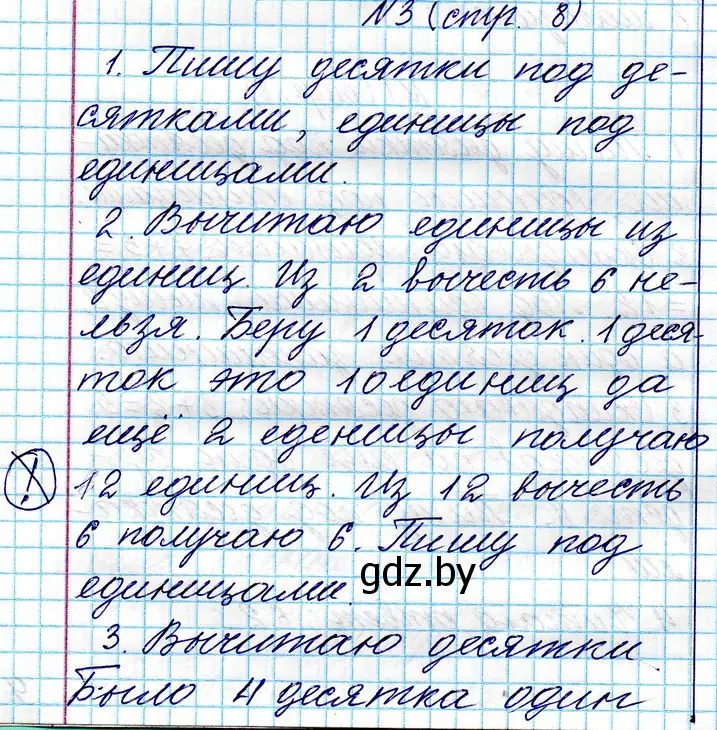 N3 (стр. 8)
1. Пишу десятки под де-
сятками, единицы под
единицами.
2. Вычитаю единицы из
единиц. Из 2 вычесть 6 не-
льзя. Беру 1 десяток. 1 деся-
ток это 10 единиц да
ещё 2 еденицы получаю
! 12 единиц. Из 12 вычесть
6 получаю 6. Пишу под
единицами.
gdz.by
3. Вычитаю десятки
Было 4 десятка один